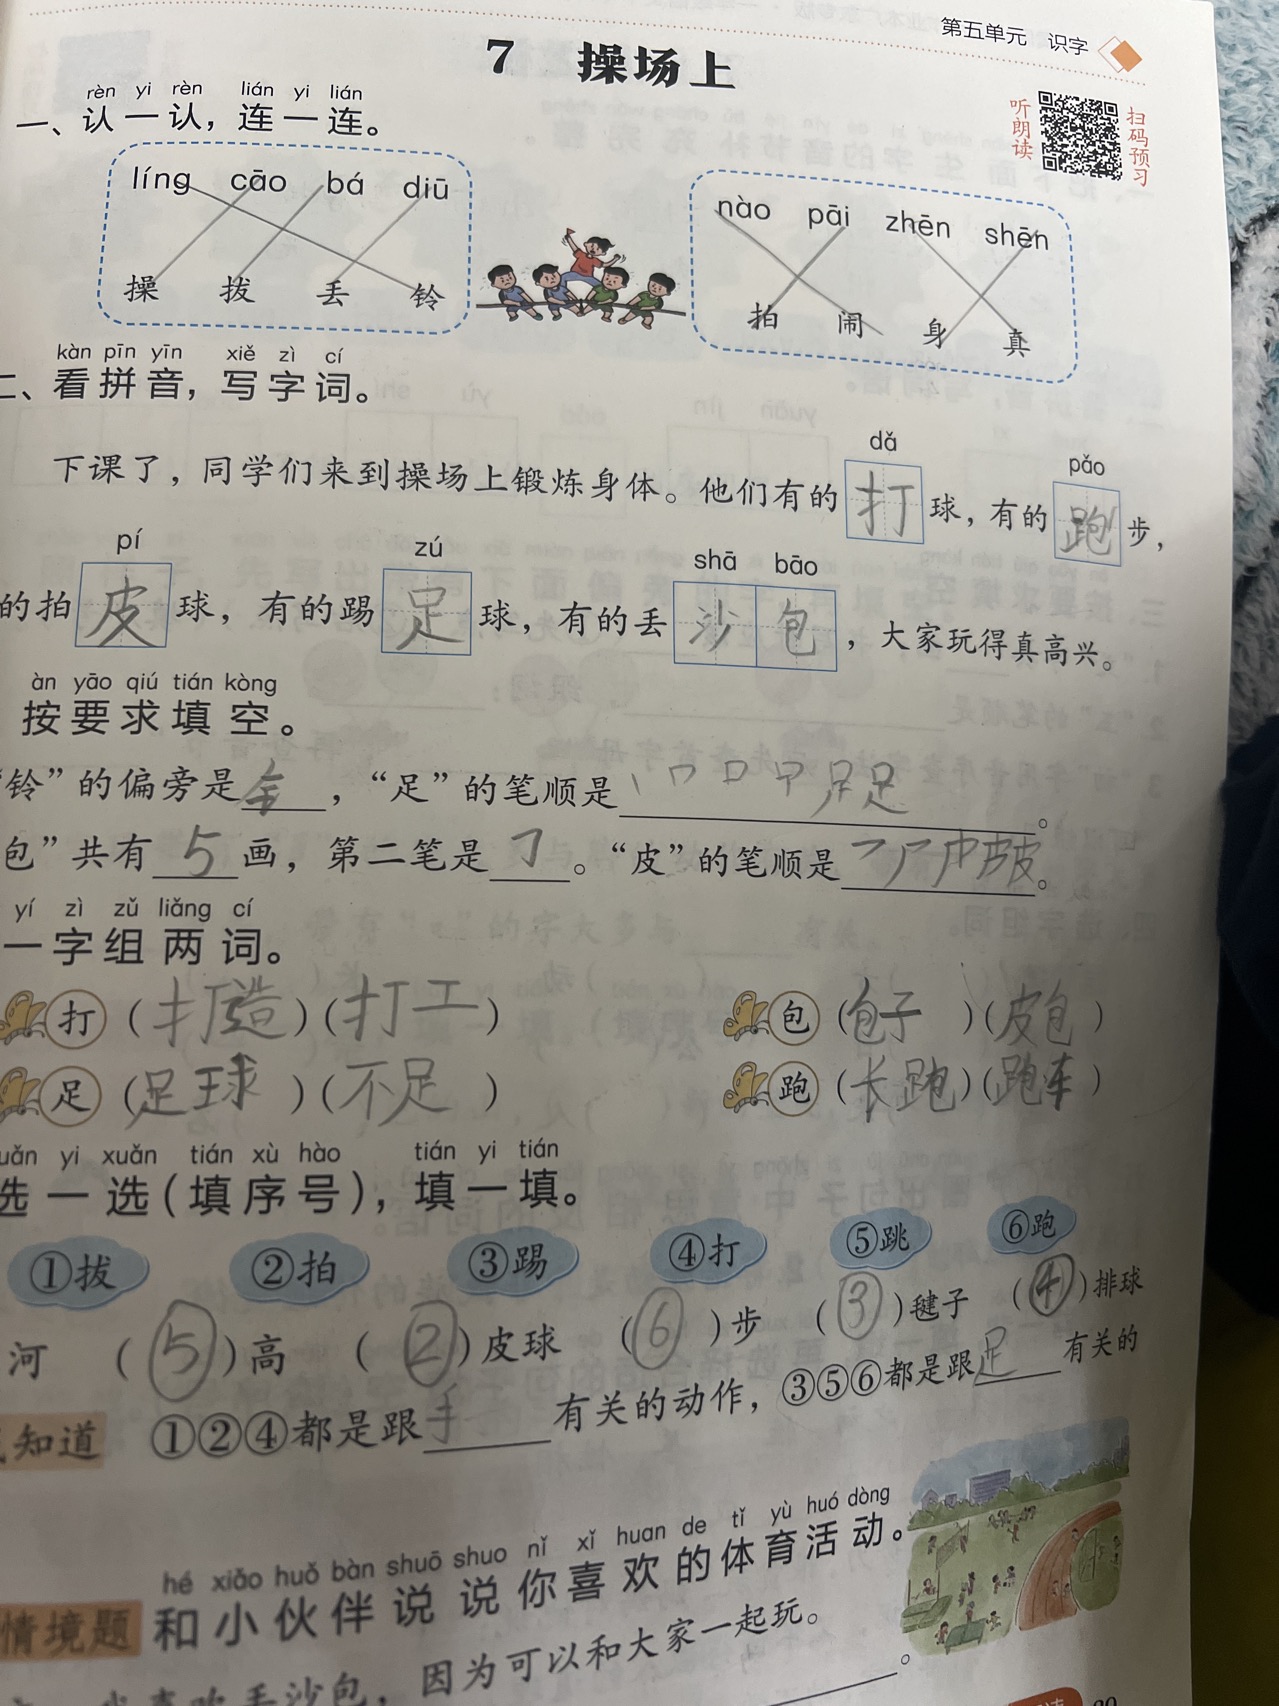 第五单元 识字
7 操场上
听朗读
扫码预习
rèn yi rèn lián yi lián
一、认一认，连一连。
líng cāo bá diū
操 拔 丢 铃
nào pāi zhēn shēn
拍 闹 身 真
kàn pīn yīn xiě zì cí
二、看拼音，写字词。
dǎ pǎo
下课了，同学们来到操场上锻炼身体。他们有的打球，有的跑步，
pí zú shā bāo
的拍皮球，有的踢足球，有的丢沙包，大家玩得真高兴。
àn yāo qiú tián kòng
按要求填空。
“铃”的偏旁是钅，“足”的笔顺是丨 口 口 甲 足 足。
包”共有5画，第二笔是㇆。“皮”的笔顺是㇇ 厂 广 皮 皮。
yí zì zǔ liǎng cí
一字组两词。
打（打造）（打工） 包（包子）（皮包）
足（足球）（不足） 跑（长跑）（跑车）
uǎn yi xuǎn tián xù hào tián yi tián
选一选（填序号），填一填。
①拔 ②拍 ③踢 ④打 ⑤跳 ⑥跑
河 （⑤）高 （②）皮球 （⑥）步 （③）毽子 （④）排球
知道 ①②④都是跟手有关的动作，③⑤⑥都是跟足有关的
hé xiǎo huǒ bàn shuō shuo nǐ xǐ huan de tǐ yù huó dòng
情境题 和小伙伴说说你喜欢的体育活动。
我喜欢丢沙包，因为可以和大家一起玩。
。